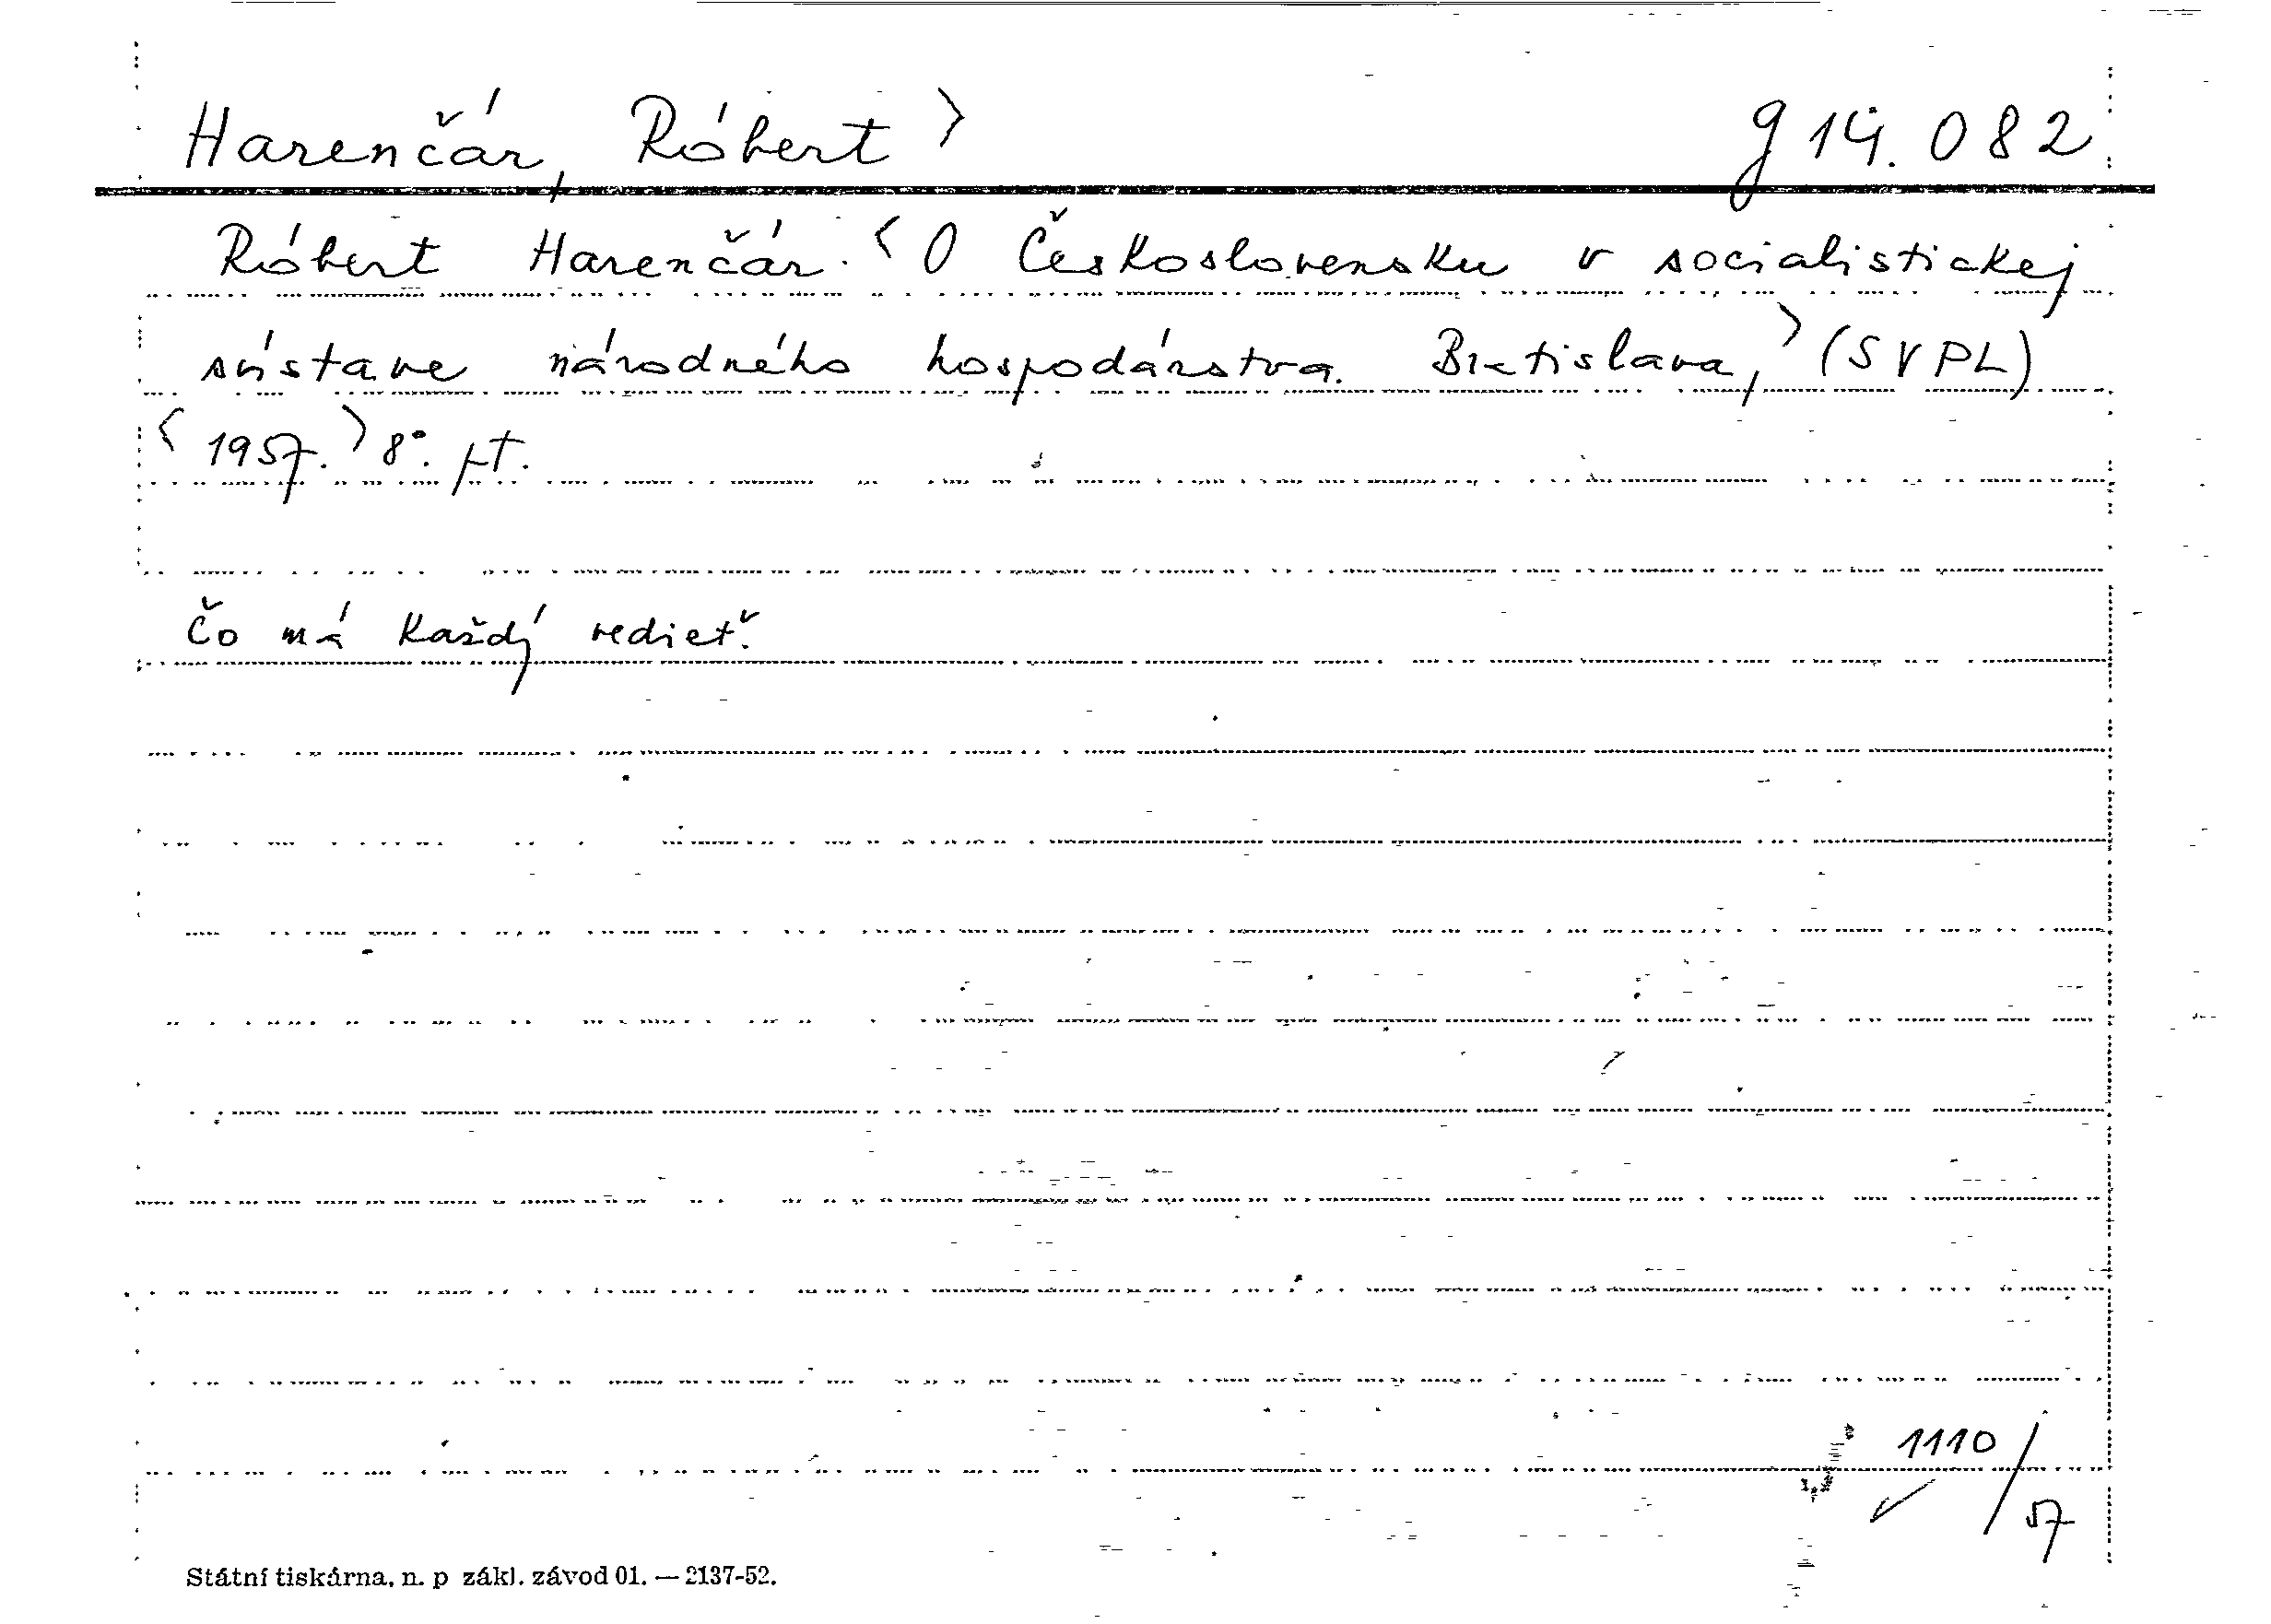 Harenčár, Róbert > g 14.082
Róbert Harenčár. < O Československu v socialistickej
sústave národného hospodárstva. Bratislava, > (SVPL)
< 1957. > 8°. pt.
Čo má každý vedieť.
1110/57
Státní tiskárna, n. p zákl. závod 01. — 2137-52.